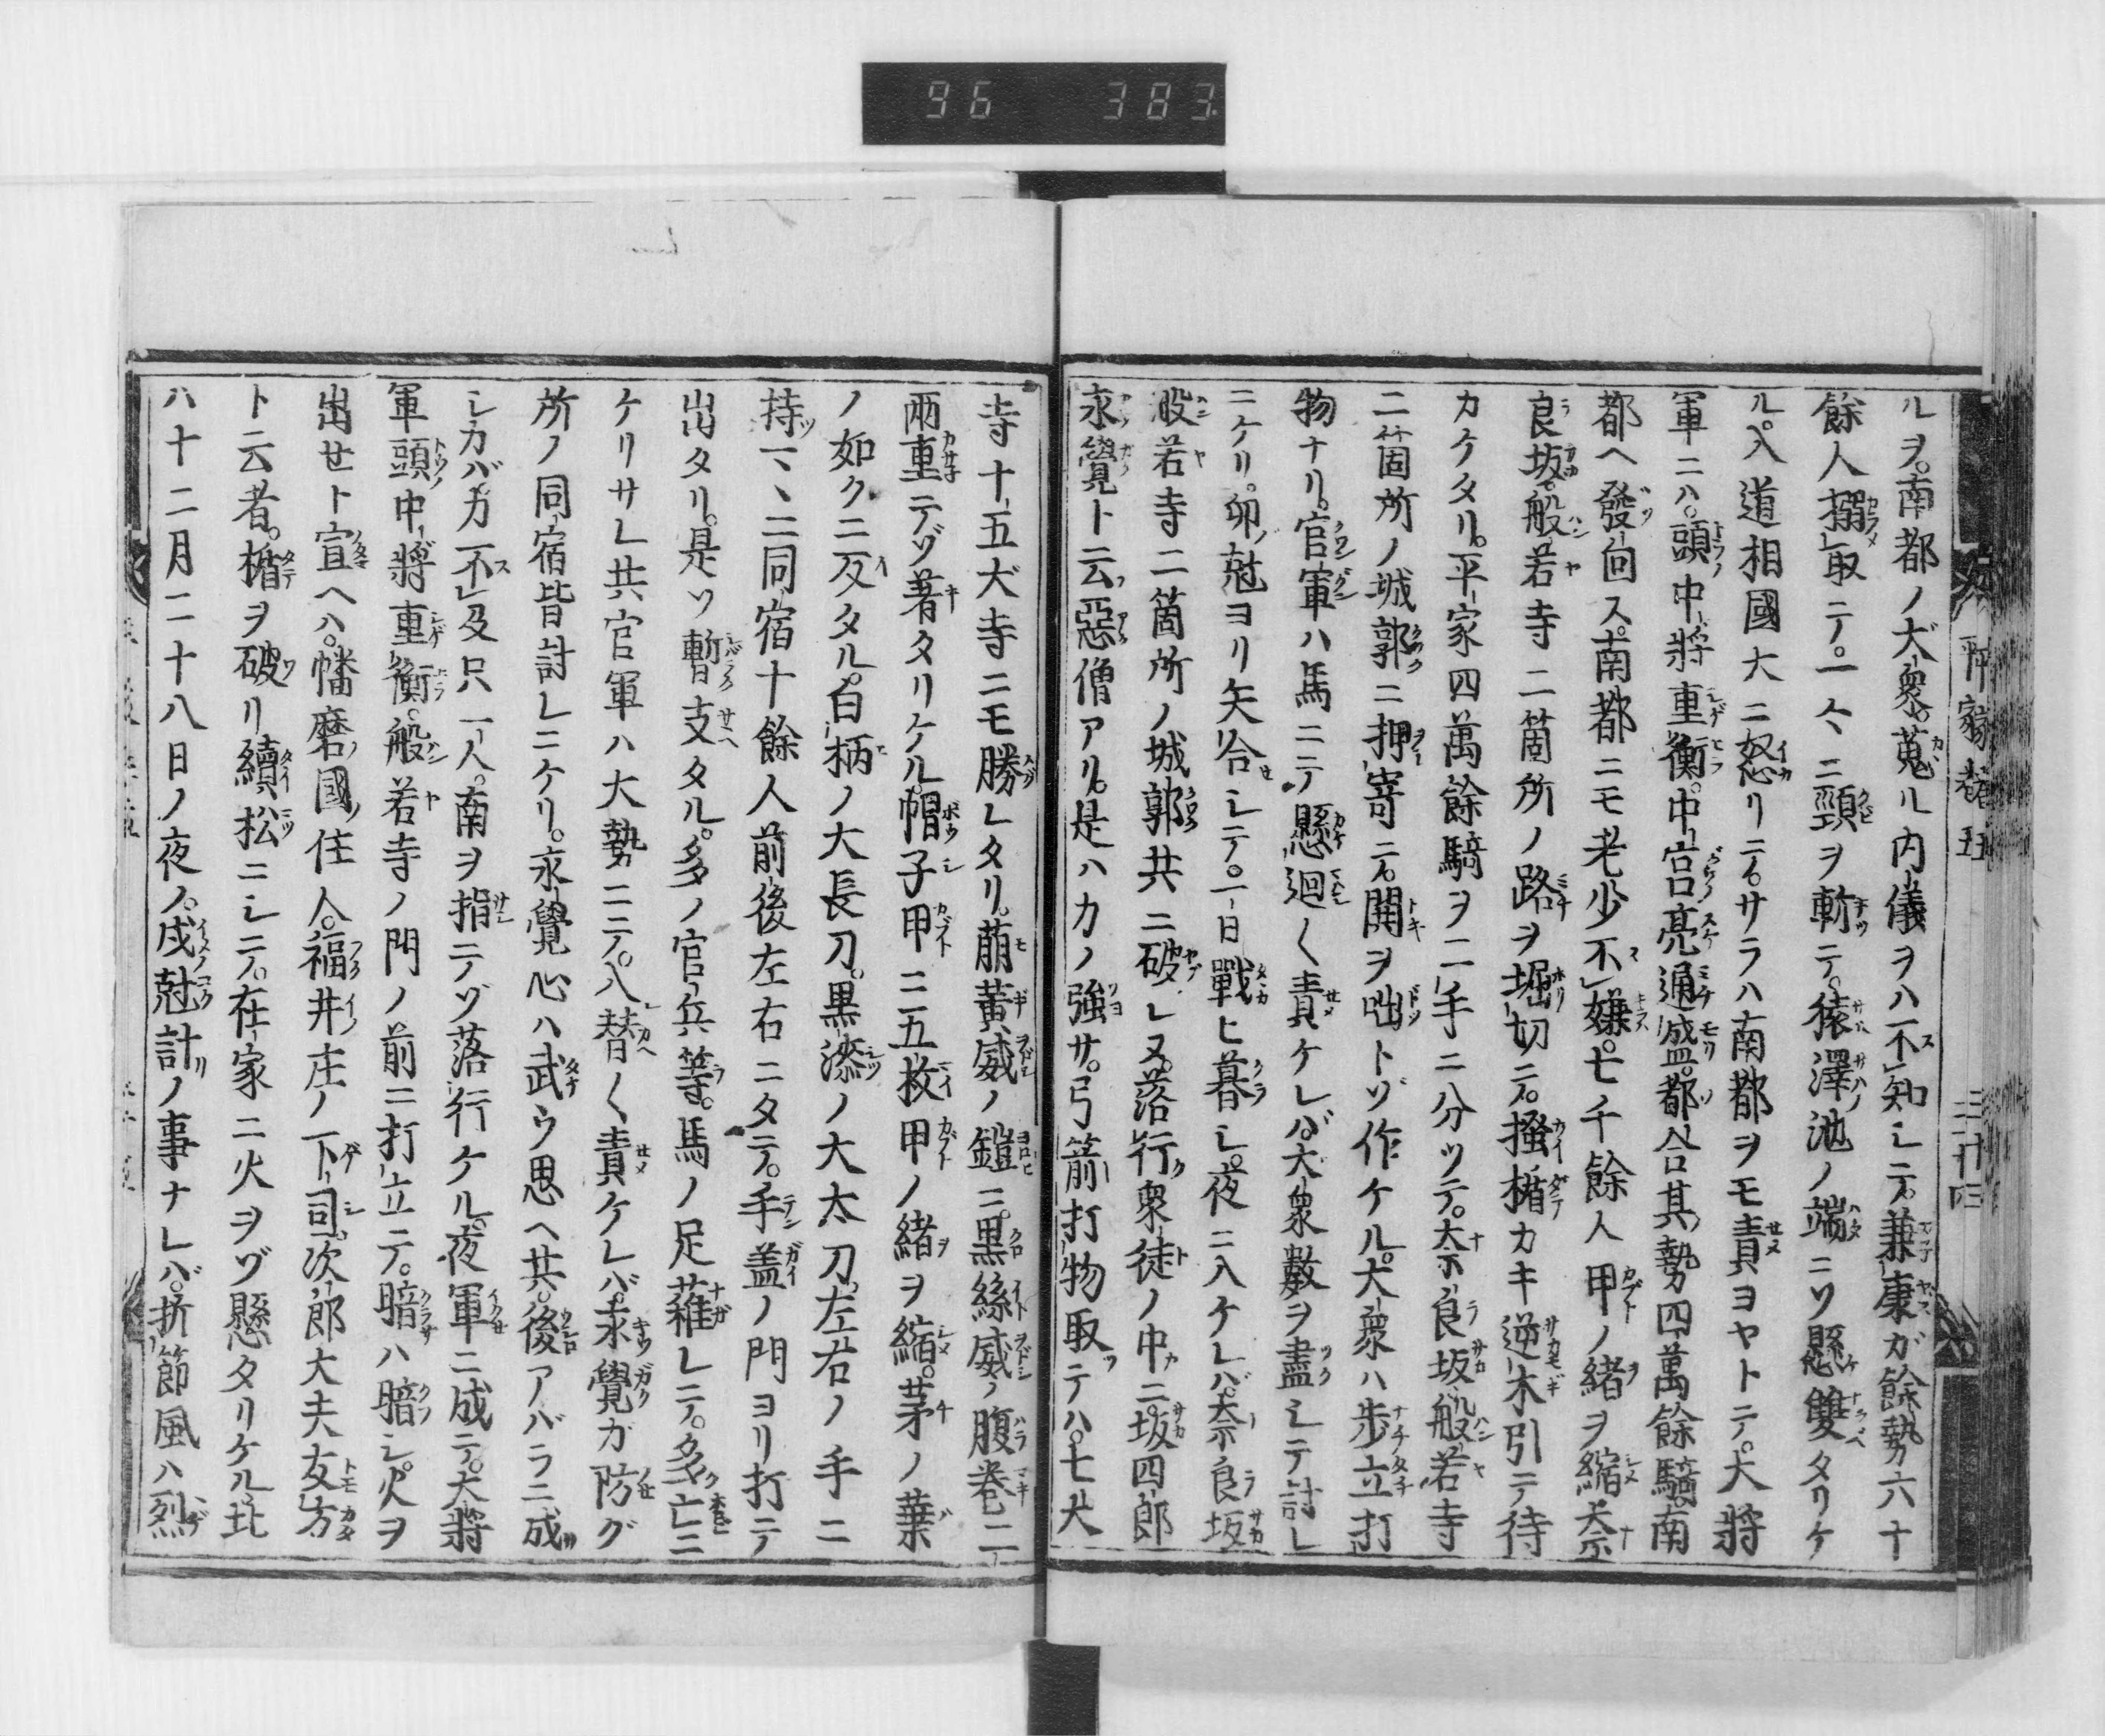 96 383
ルヲ。南都ノ大衆。蒐ル内儀ヲハ不知シテ。兼康ガ餘勢六十
餘人搦取テ。一々ニ頸ヲ斬テ。猿澤池ノ端ニソ懸雙タリケ
ル。入道相國大ニ怒リテ。サラハ南都ヲモ責ヨヤトテ。大將
軍ニハ。頭中將重衡。中宮亮通盛。都合其勢四萬餘騎。南
都ヘ發向ス。南都ニモ老少不嫌。七千餘人甲ノ緒ヲ縮。奈
良坂。般若寺二箇所ノ路ヲ堀切テ。掻楯カキ逆木引テ待
カケタリ。平家四萬餘騎ヲ二手ニ分ツテ。奈良坂。般若寺
二箇所ノ城郭ニ押寄テ。鬨ヲ咄トゾ作ケル。大衆ハ歩立打
物ナリ。官軍ハ馬ニテ懸廻〱責ケレバ。大衆數ヲ盡シテ討レ
ニケリ。卯ノ尅ヨリ矢合シテ。一日戰ヒ暮シ。夜ニ入ケレバ。奈良坂
般若寺二箇所ノ城郭共ニ破レヌ。落行衆徒ノ中ニ。坂四郎
永覺ト云惡僧アリ。是ハカノ強サ。弓箭打物取テハ。七大
寺十五大寺ニモ勝レタリ。萠黃威ノ鎧ニ。黒絲威ノ腹卷二
兩重テゾ著タリケル。帽子甲ニ五枚甲ノ緒ヲ縮。茅ノ葉
ノ如クニ反タル。白柄ノ大長刀。黒漆ノ大太刀。左右ノ手ニ
持マヽニ同宿十餘人前後左右ニタテ。手盖ノ門ヨリ打テ
出タリ。是ソ暫支タル。多ノ官兵等。馬ノ足薙レテ。多亡ニ
ケリサレ共官軍ハ大勢ニテ。入替〱責ケレバ。永覺ガ防グ
所ノ同宿皆討レニケリ。永覺心ハ武ウ思ヘ共。後アバラニ成
シカバ。力不及只一人。南ヲ指テゾ落行ケル。夜軍ニ成テ。大將
軍頭中將重衡。般若寺ノ門ノ前ニ打立テ。暗ハ暗シ。火ヲ
出セト宣ヘハ。幡磨國ノ住人。福井庄ノ下司。次郎大夫友方
ト云者。楯ヲ破リ續松ニシテ。在家ニ火ヲゾ懸タリケル。比
ハ十二月二十八日ノ夜ノ。戌尅計ノ事ナレバ。折節風ハ烈
平家 卷五 三十四